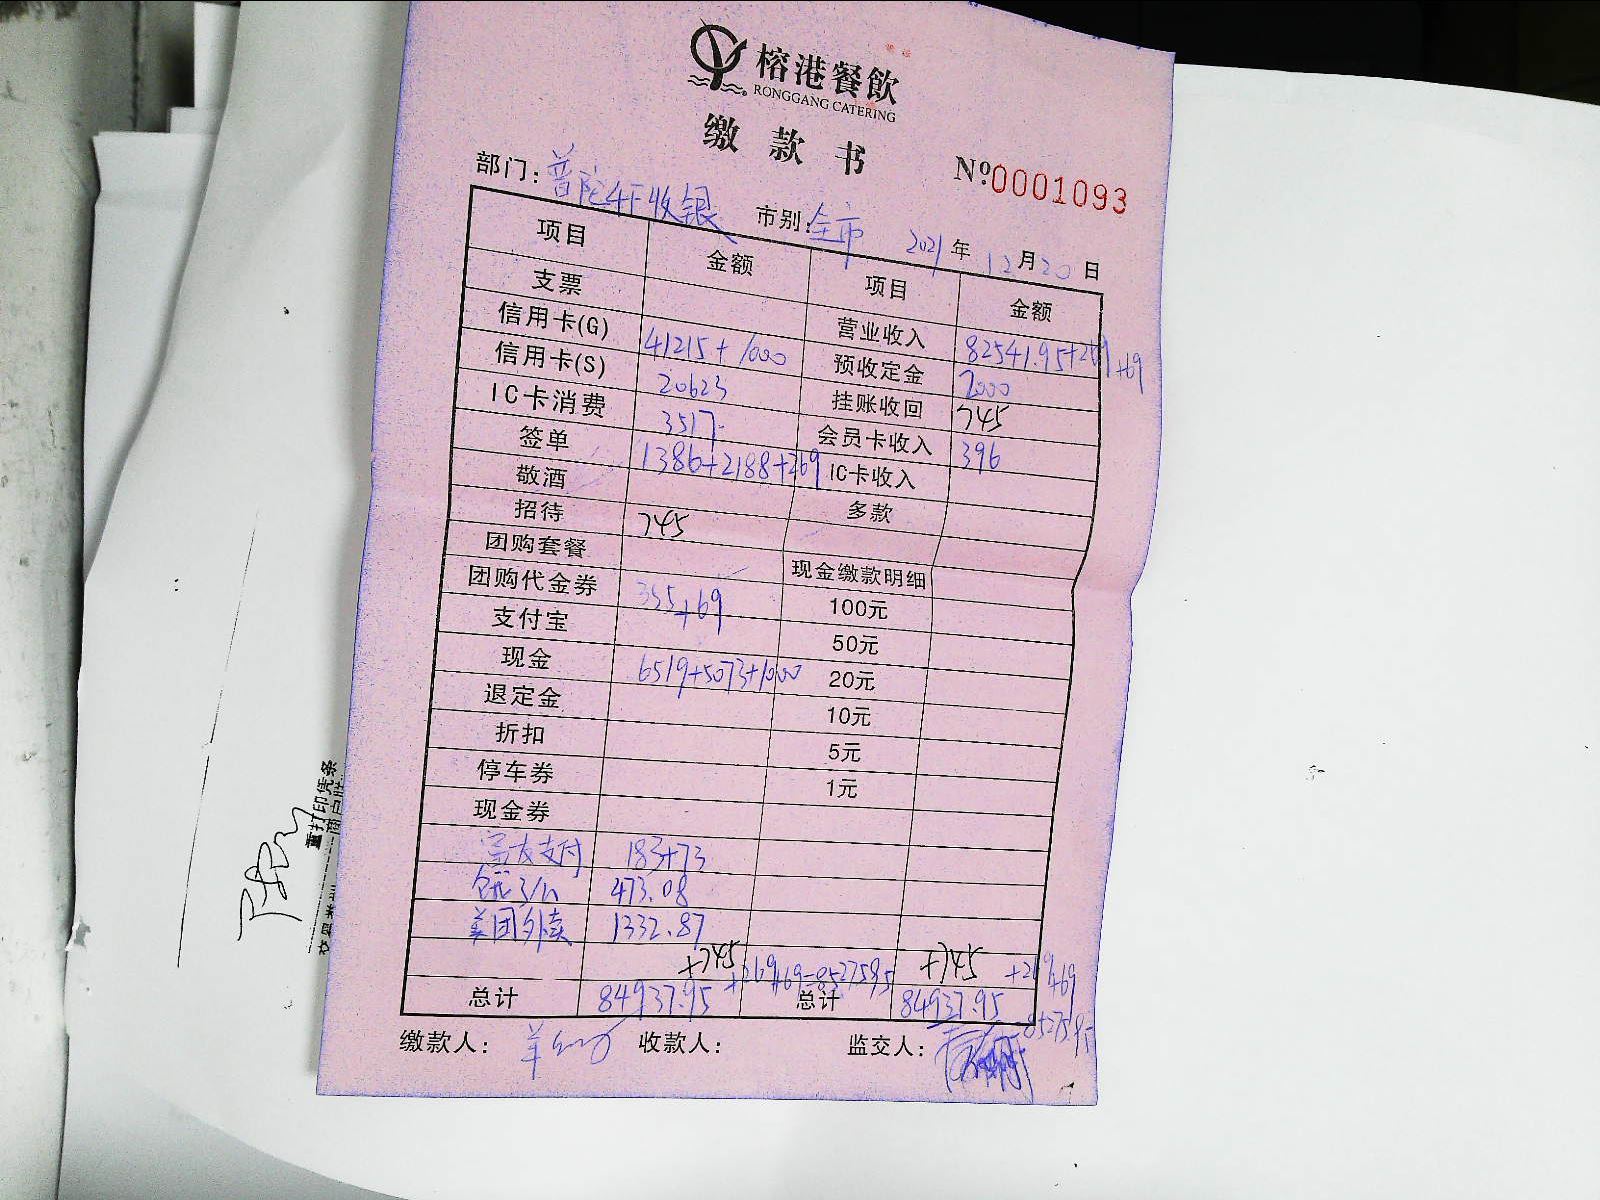 榕港餐飲
RONGGANG CATERING
缴款书
№0001093
部门: 普陀4F收银 市别: 全市 2021年12月20日
项目 金额 项目 金额
支票 营业收入 82541.95+269+69
信用卡(G) 41215+1000 预收定金 2000
信用卡(S) 20623 挂账收回 745
IC卡消费 3517 会员卡收入 396
签单 1386+2188+269 IC卡收入
敬酒 多款
招待 745
团购套餐 现金缴款明细
团购代金券 355+69 100元
支付宝 50元
现金 6519+5073+1000 20元
退定金 10元
折扣 5元
停车券 1元
现金券
支付 183+73
饿了么 473.08
美团外卖 1332.87
+745 +269+69=85275.95 +745 +269+69
总计 84937.95 总计 84937.95
85275.95
缴款人: 收款人: 监交人:
重打印凭条